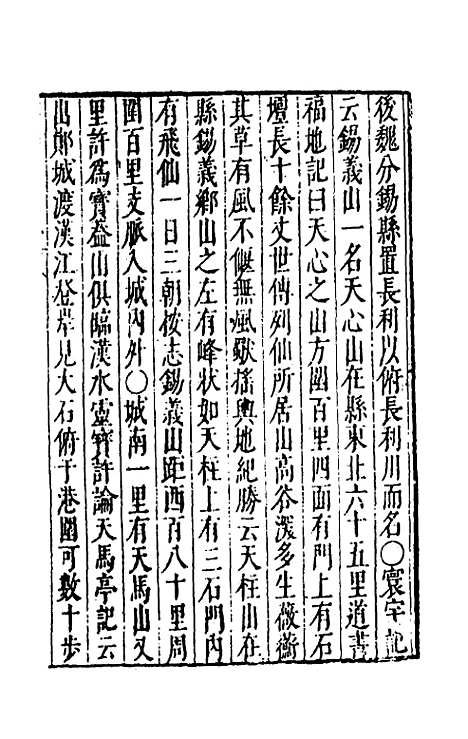 後魏分錫縣置長利以俯長利川而名〇寰宇記
云錫義山一名天心山在縣東北六十五里道書
福地記曰天心之山方圍百里四面有門上有石
壇長十餘丈世傳列仙所居山高谷深多生薇蘅
其草有風不偃無風獨搖輿地紀勝云天柱山在
縣錫義鄉山之左有峰狀如天柱上有三石門內
有飛仙一日三朝按志錫義山距西百八十里周
圍百里支脈入城內外〇城南一里有天馬山又
里許為寶蓋山俱臨漢水靈寶許論天馬亭記云
出鄖城渡漢江登岸見大石俯于港圍可數十步